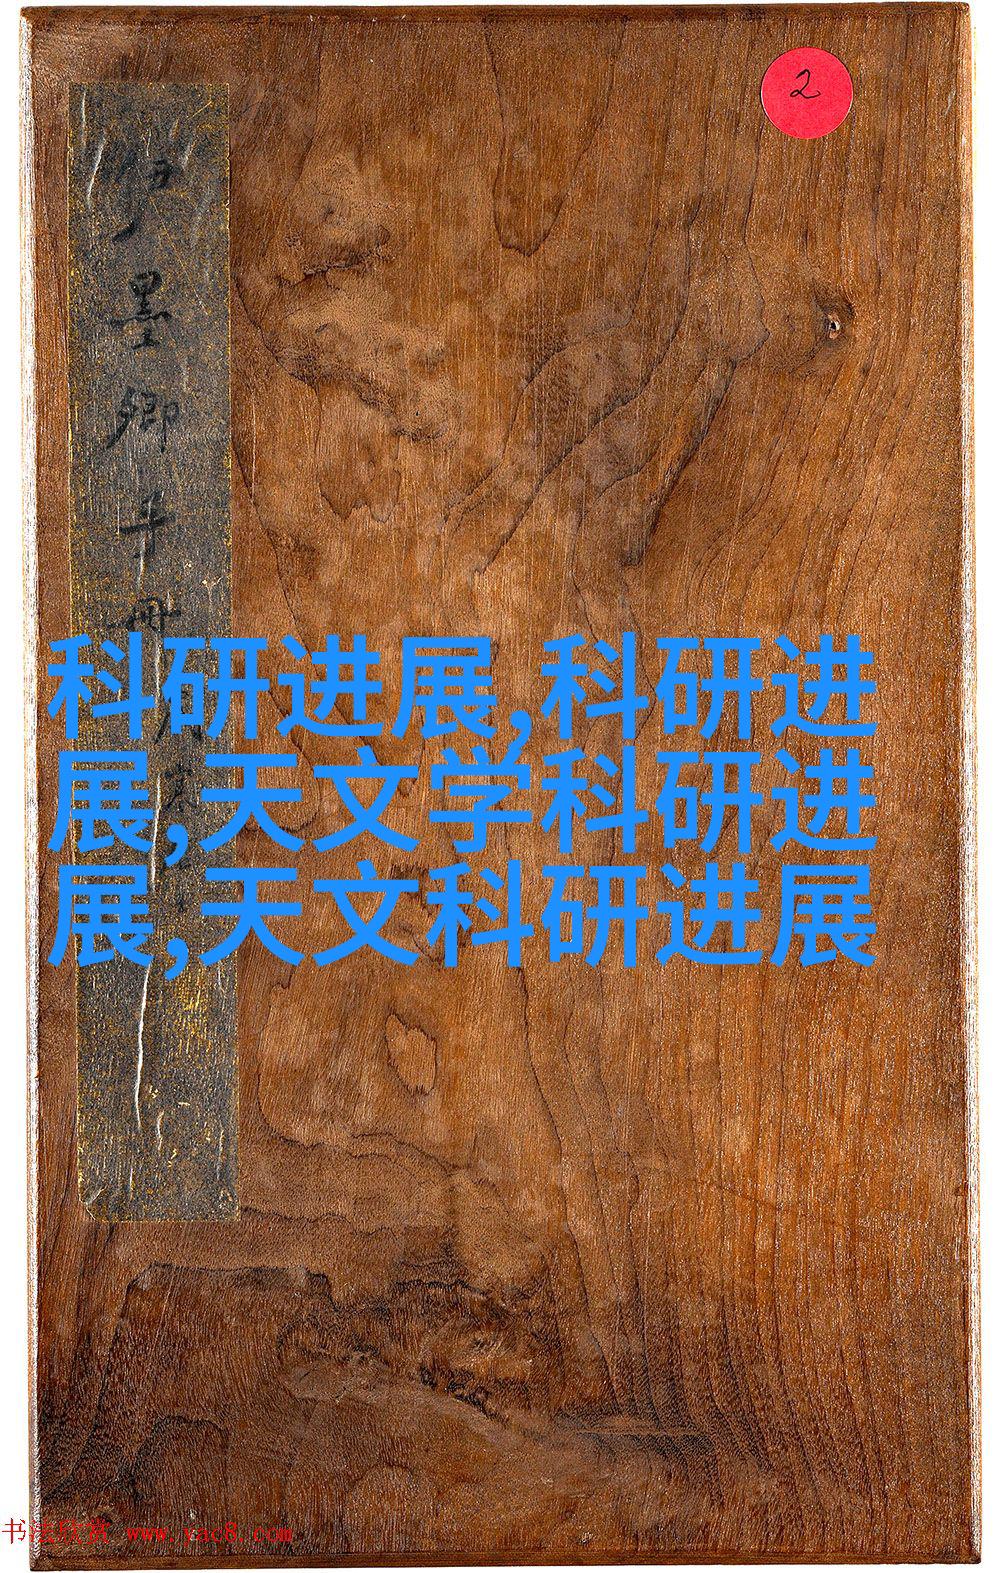 2
墨卿手册
科研进展,科研进
展,天文学科研进
展,天文科研进展
书法欣赏 www.yac8.com